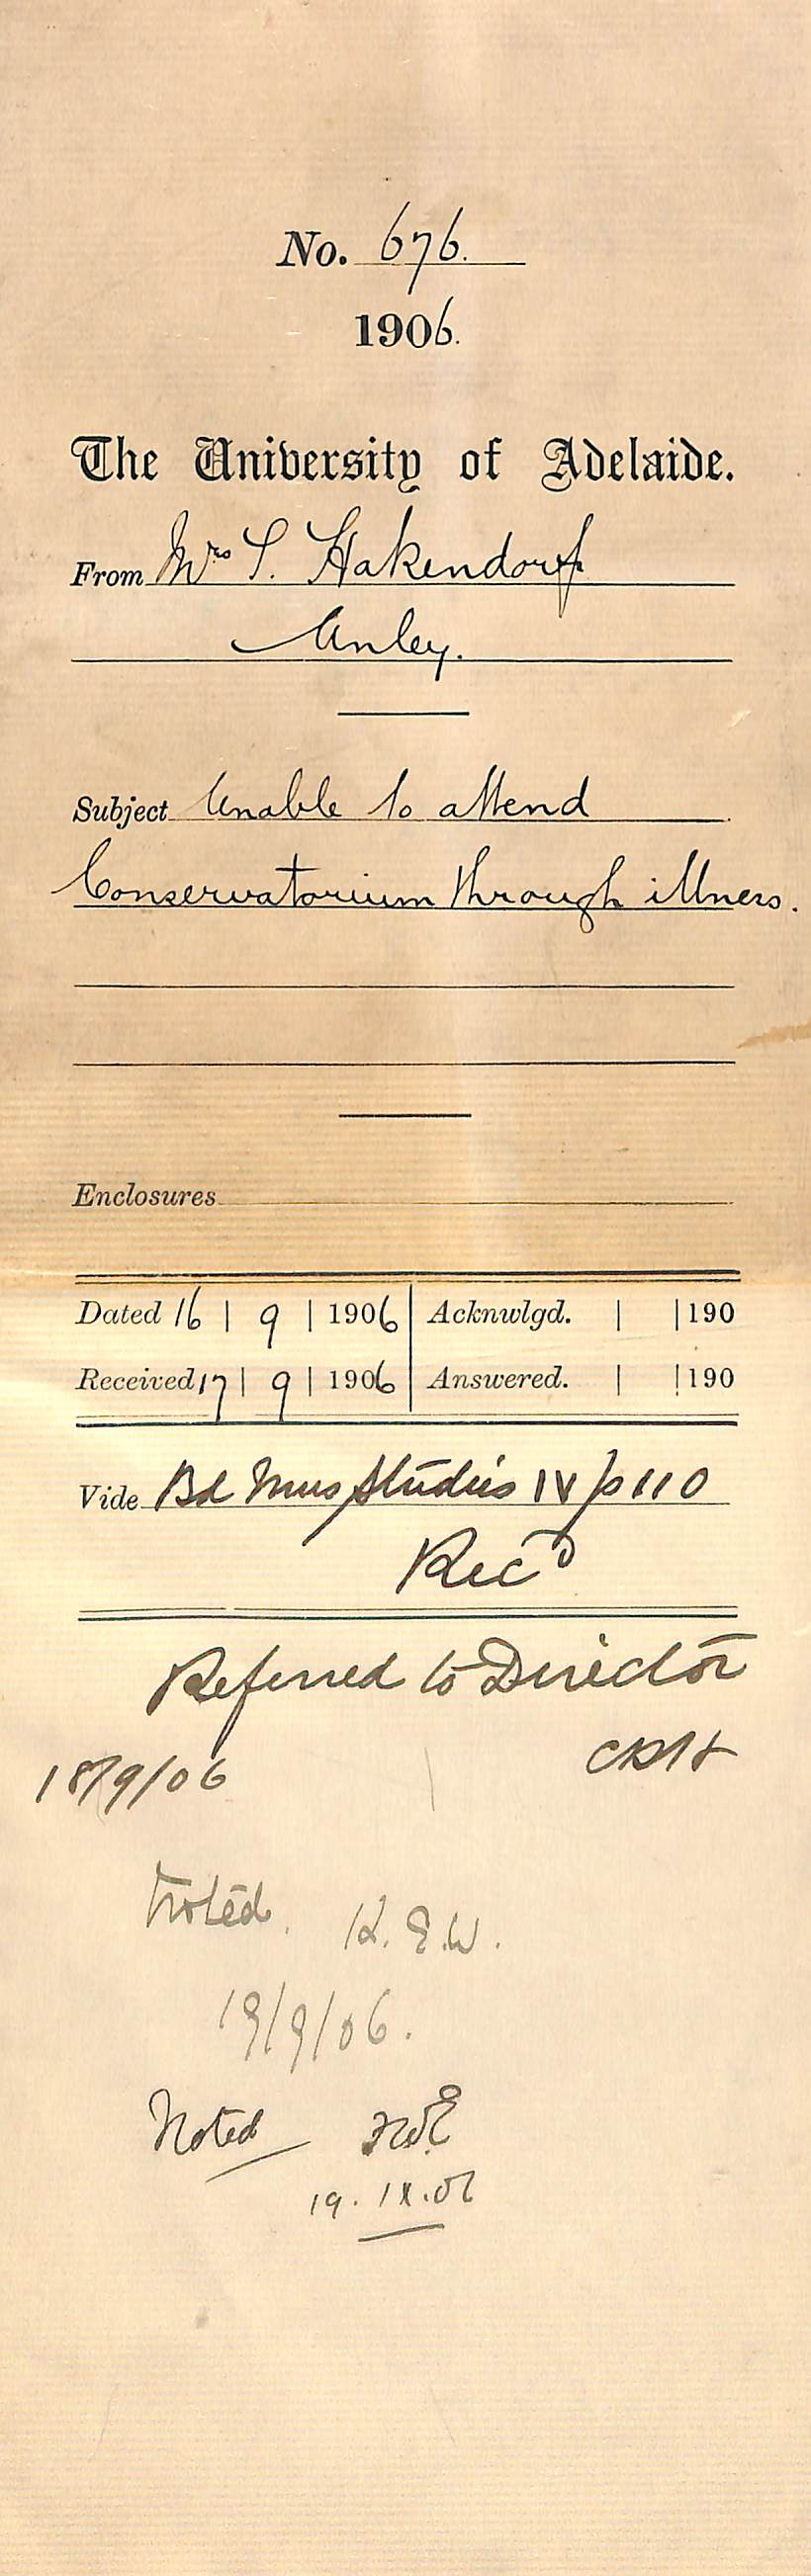 No. 676.
1906.
The University of Adelaide.
From Mrs S. Hakendorf
Unley.
Subject Unable to attend
Conservatorium through illness.
Enclosures
Dated 16 | 9 | 1906 Acknwlgd. | | 190
Received 17 | 9 | 1906 Answered. | | 190
Vide Bd Mus Studies IV p 110
Recd
Referred to Director
CRH
18/9/06
Noted. H.E.W.
19/9/06.
Noted
19. IX. 06